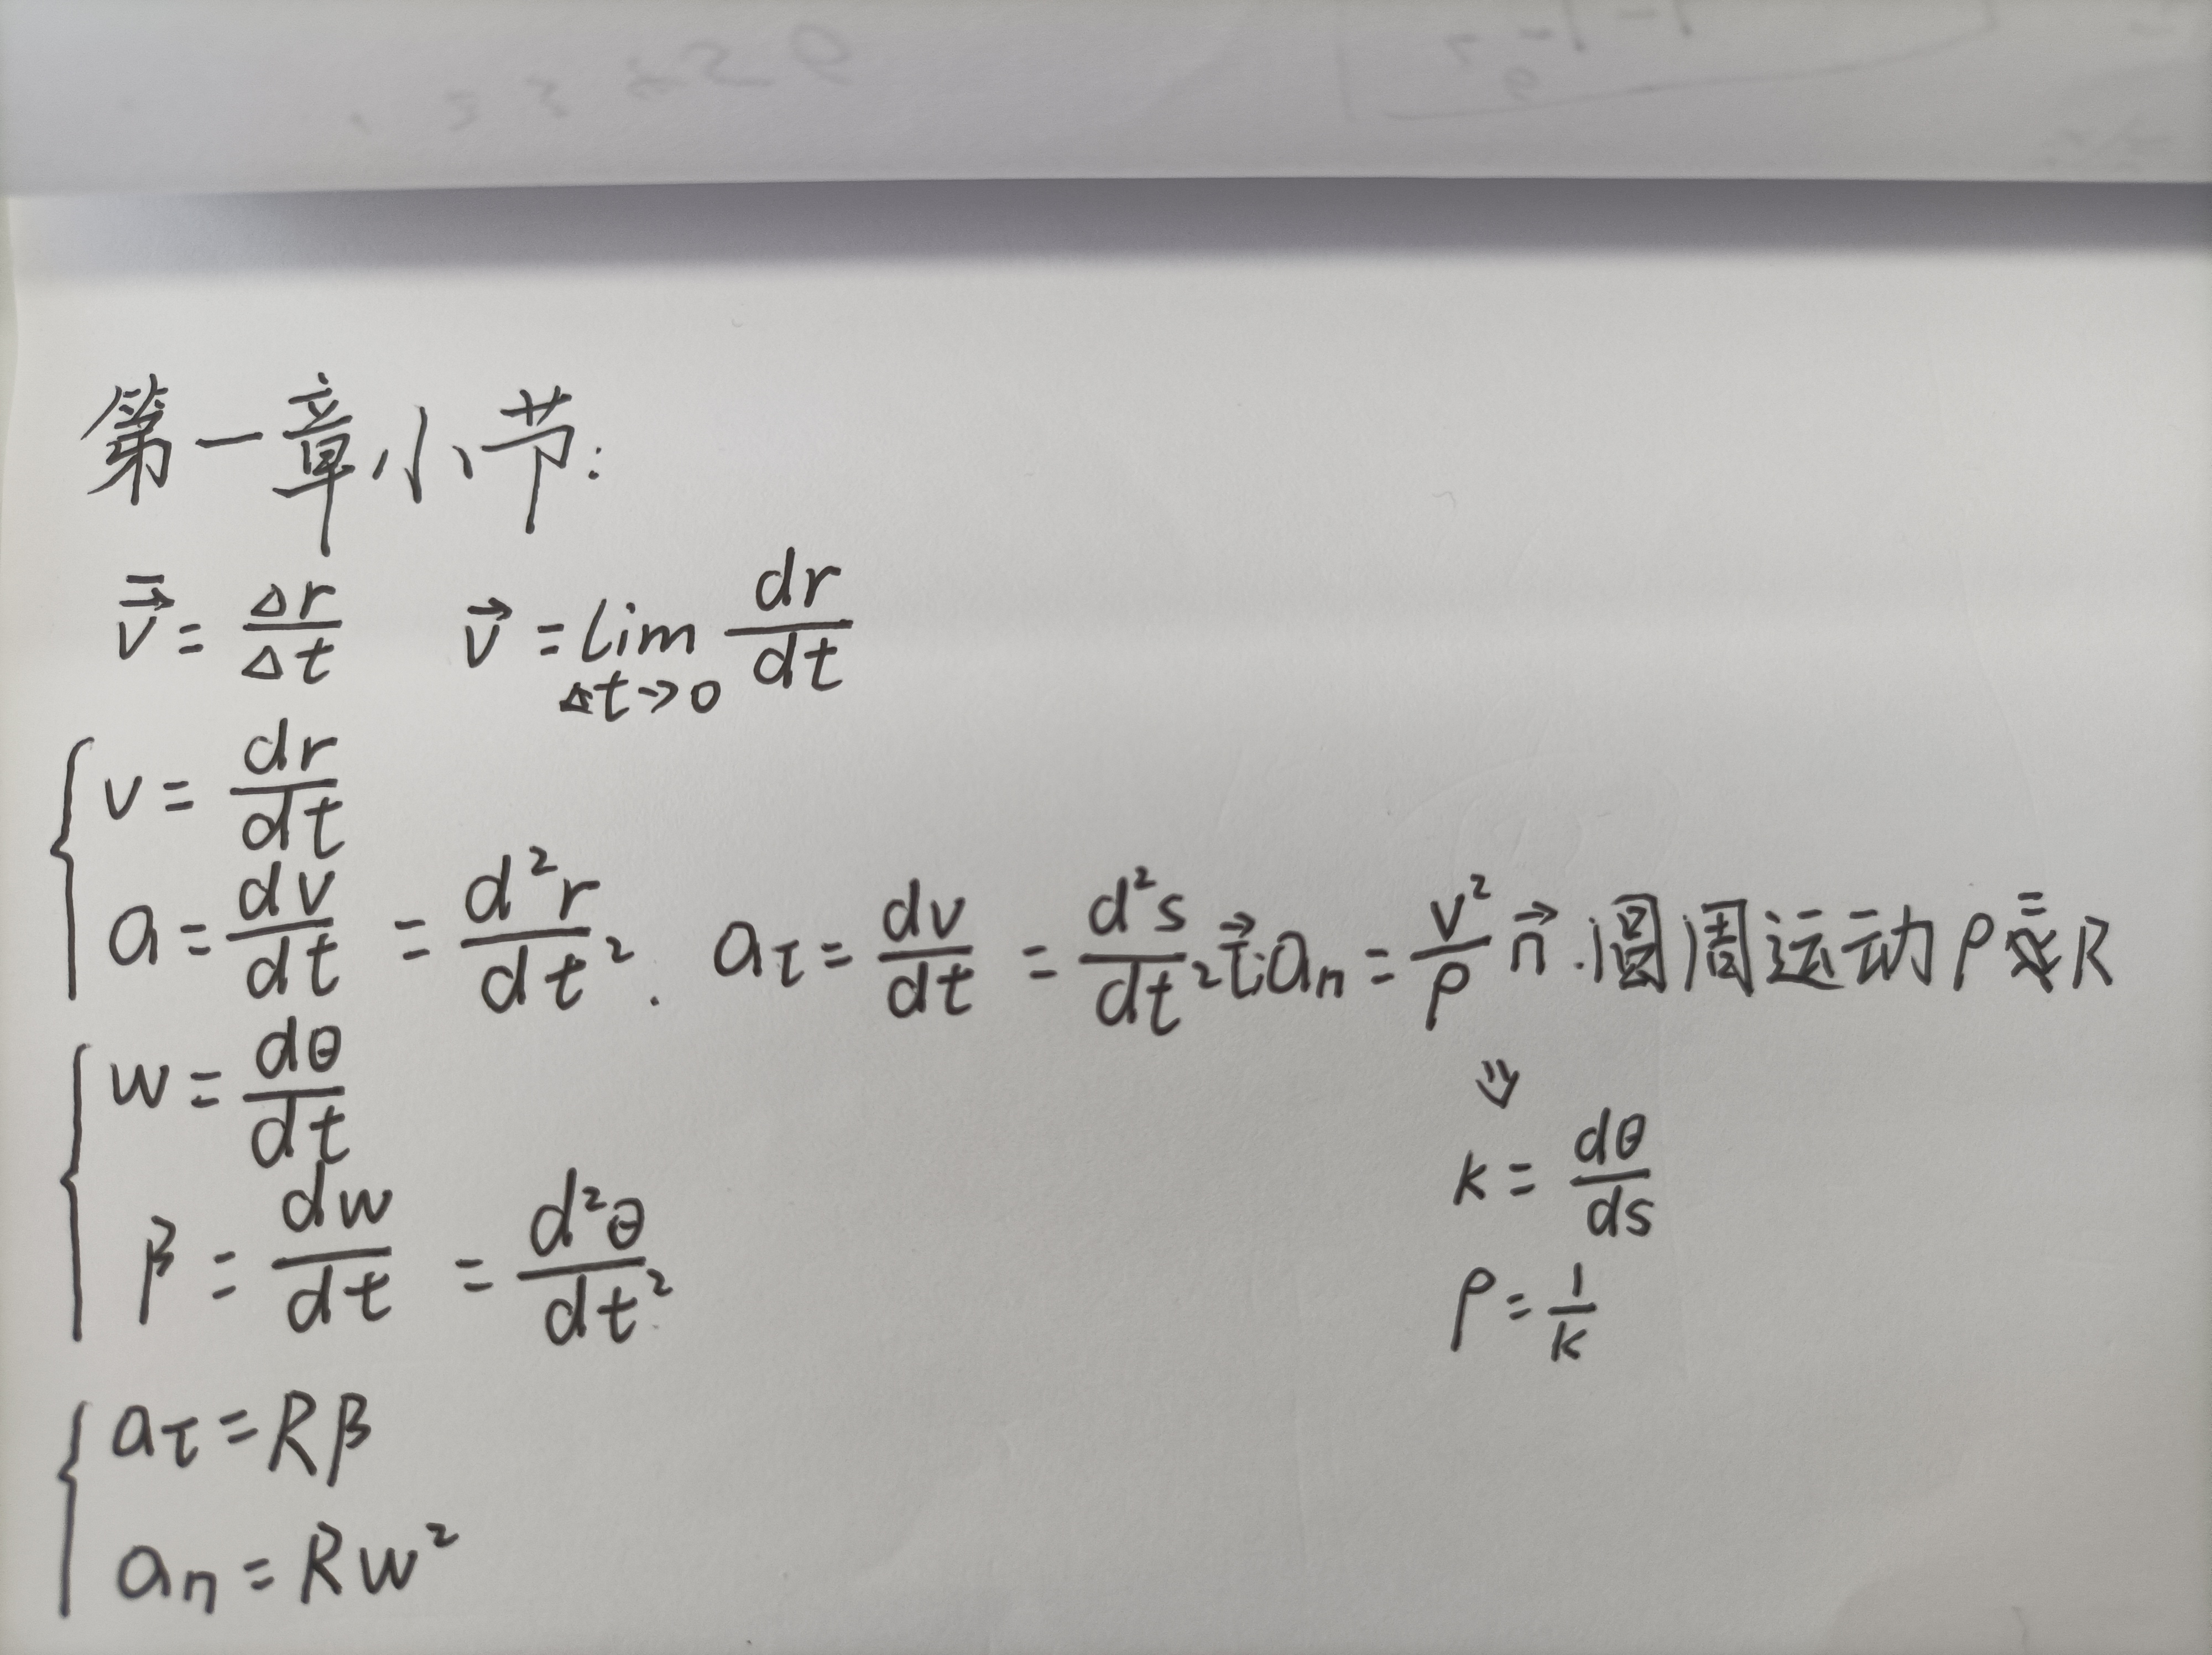 第一章小节:
$\bar{\vec{v}} = \frac{\Delta r}{\Delta t}$ $\vec{v} = \lim_{\Delta t \to 0} \frac{dr}{dt}$
$v = \frac{dr}{dt}$
$a = \frac{dv}{dt} = \frac{d^2r}{dt^2}$. $a_\tau = \frac{dv}{dt} = \frac{d^2s}{dt^2}\vec{\tau}$; $a_n = \frac{v^2}{\rho}\vec{n}$. 圆周运动 $\rho = R$
$w = \frac{d\theta}{dt}$
⇓
$k = \frac{d\theta}{ds}$
$\beta = \frac{dw}{dt} = \frac{d^2\theta}{dt^2}$
$\rho = \frac{1}{k}$
$a_\tau = R\beta$
$a_n = Rw^2$